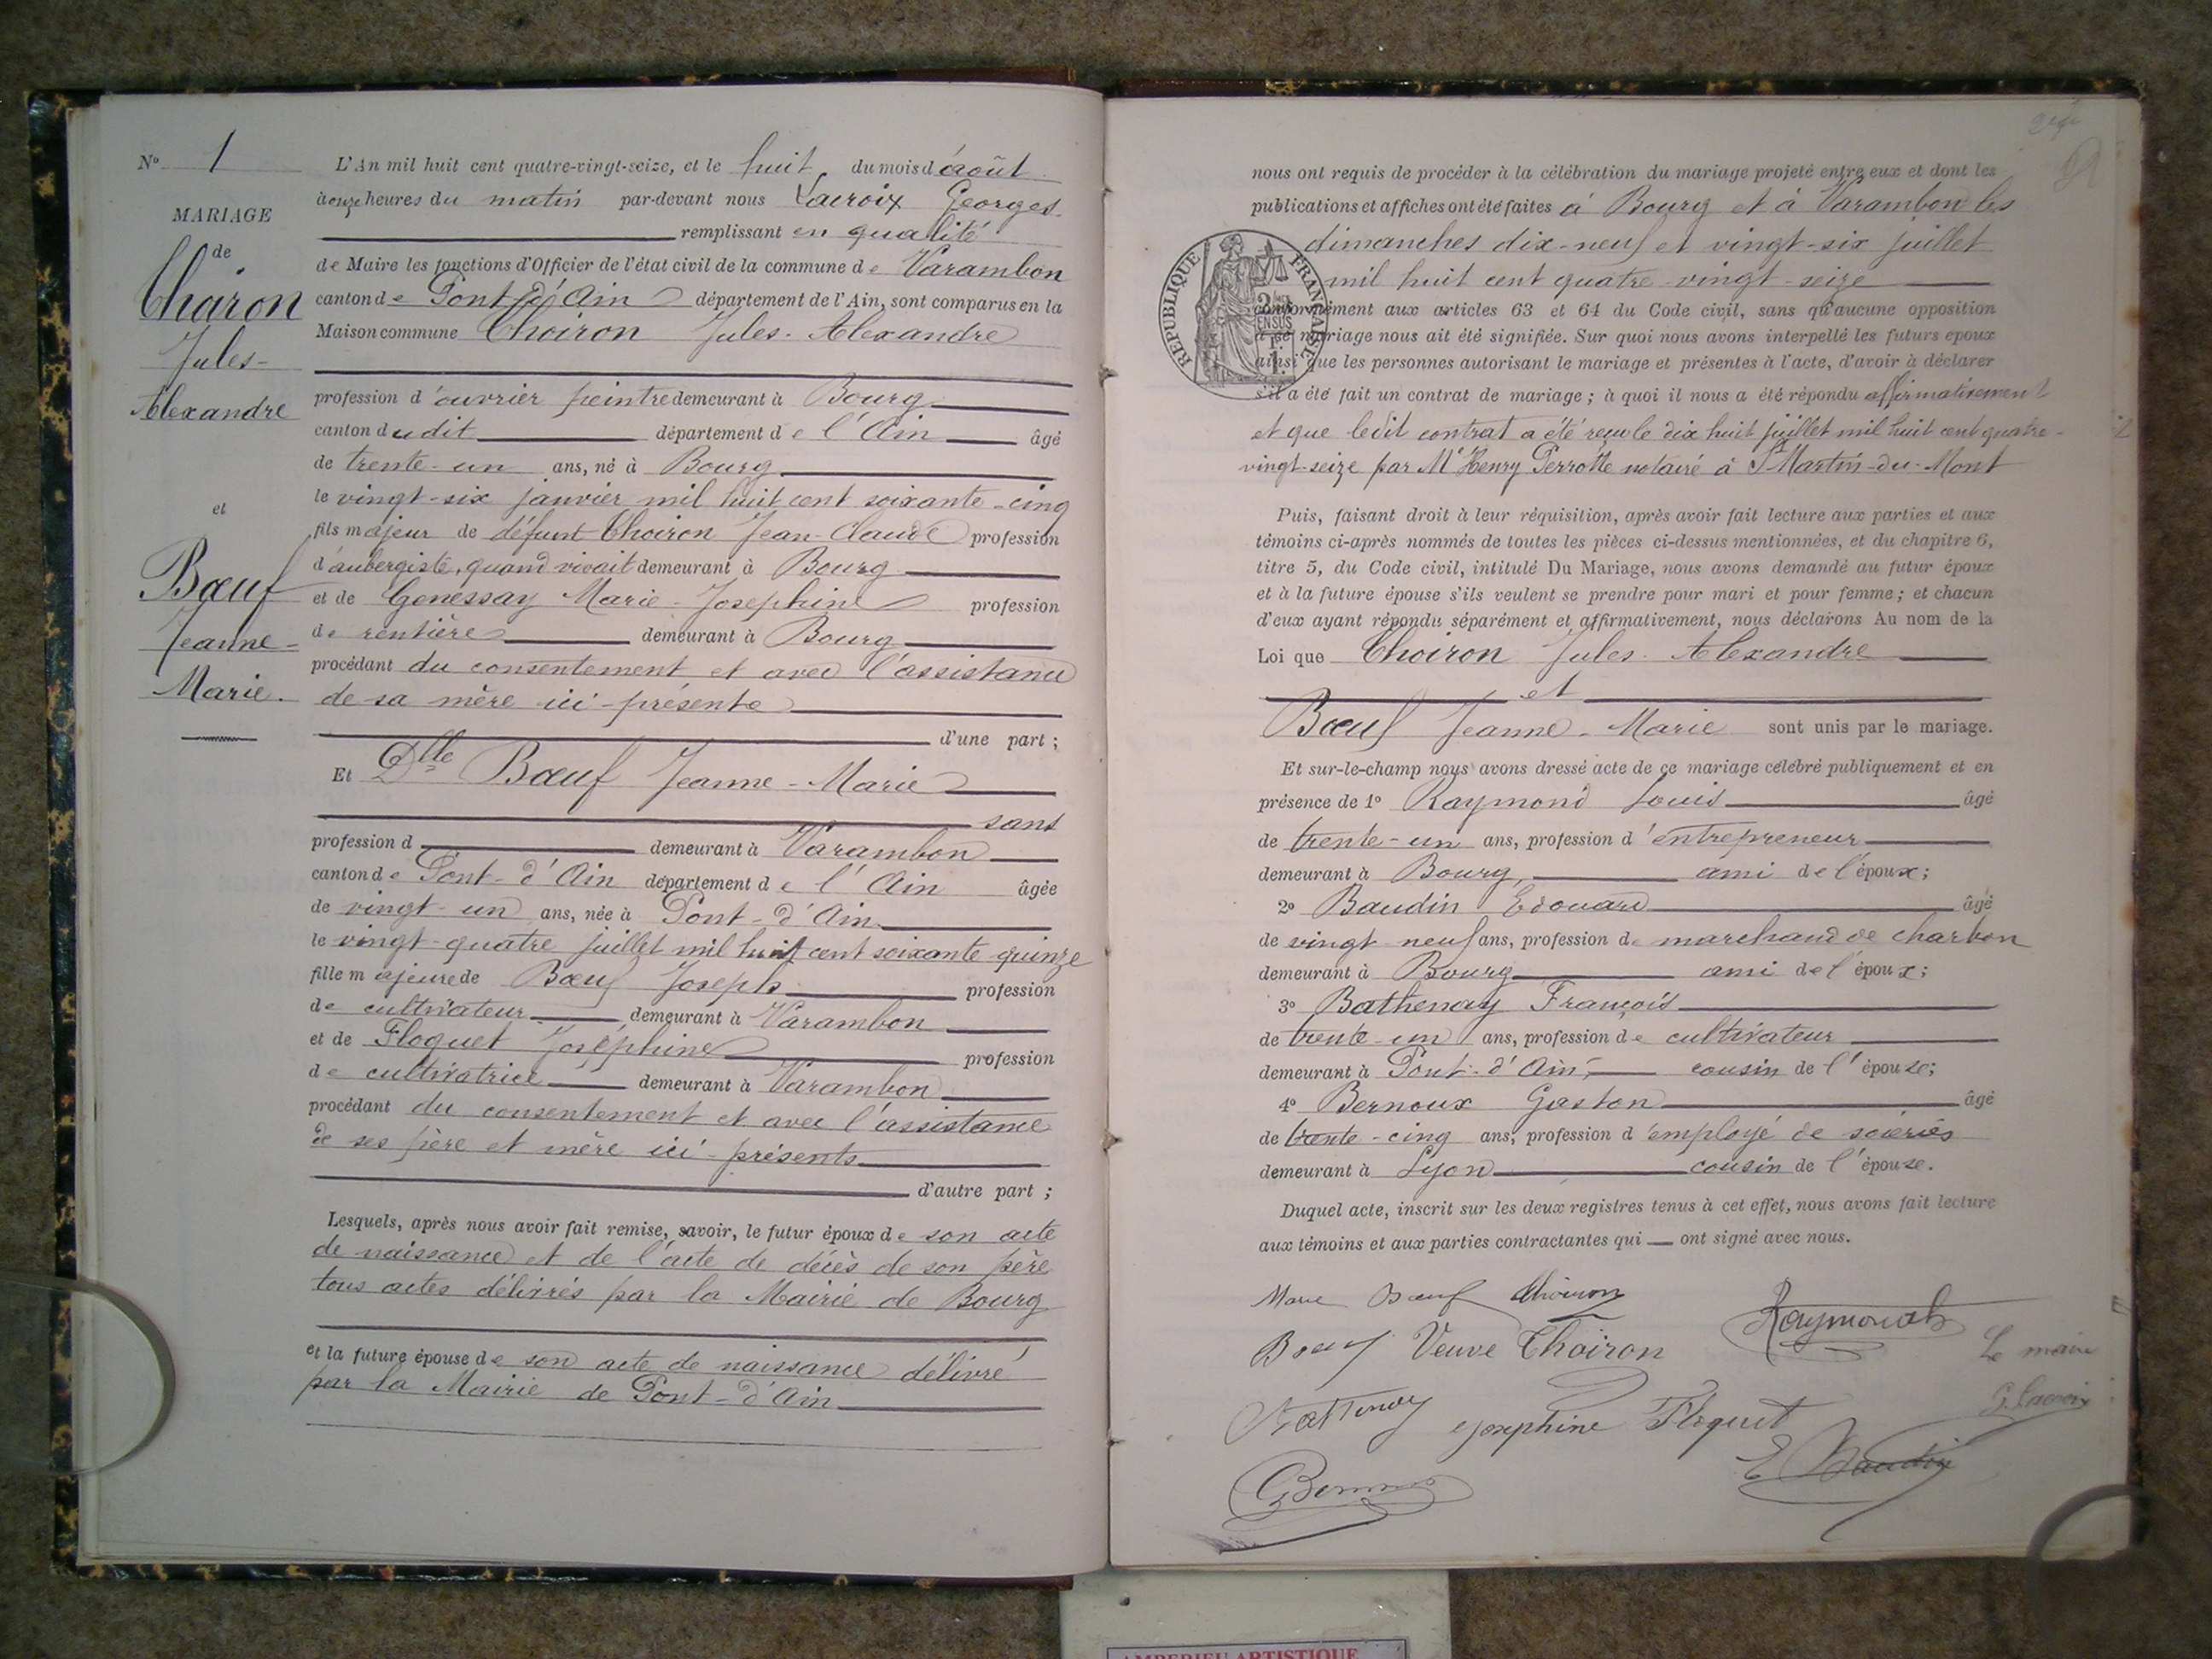 N° 1
MARIAGE
de
Choiron
Jules-
Alexandre
et
Bœuf
Jeanne-
Marie.
L'An mil huit cent quatre-vingt-seize, et le huit du mois d'août
à onze heures du matin par-devant nous Lacroix Georges
remplissant en qualité
de Maire les fonctions d'Officier de l'état civil de la commune de Varambon
canton de Pont-d'Ain département de l'Ain, sont comparus en la
Maison commune Choiron Jules-Alexandre
profession d'ouvrier peintre demeurant à Bourg
canton dudit département de l'Ain âgé
de trente-un ans, né à Bourg
le vingt-six janvier mil huit cent soixante-cinq
fils majeur de défunt Choiron Jean-Claude profession
d'aubergiste, quand vivait demeurant à Bourg
et de Genessay Marie-Josephine profession
de rentière demeurant à Bourg
procédant du consentement et avec l'assistance
de sa mère ici-présente
d'une part ;
Et Dlle Bœuf Jeanne-Marie
sans
profession d demeurant à Varambon
canton de Pont-d'Ain département de l'Ain âgée
de vingt-un ans, née à Pont-d'Ain
le vingt-quatre juillet mil huit cent soixante-quinze
fille majeure de Bœuf Joseph profession
de cultivateur demeurant à Varambon
et de Floquet Joséphine profession
de cultivatrice demeurant à Varambon
procédant du consentement et avec l'assistance
de ses père et mère ici-présents
d'autre part ;
Lesquels, après nous avoir fait remise, savoir, le futur époux de son acte
de naissance et de l'acte de décès de son père
tous actes délivrés par la Mairie de Bourg
et la future épouse de son acte de naissance délivré
par la Mairie de Pont-d'Ain
nous ont requis de procéder à la célébration du mariage projeté entre eux et dont les
publications et affiches ont été faites à Bourg et à Varambon les
dimanches dix-neuf et vingt-six juillet
mil huit cent quatre-vingt-seize
RÉPUBLIQUE FRANÇAISE
conformément aux articles 63 et 64 du Code civil, sans qu'aucune opposition
à ce mariage nous ait été signifiée. Sur quoi nous avons interpellé les futurs époux
ainsi que les personnes autorisant le mariage et présentes à l'acte, d'avoir à déclarer
s'il a été fait un contrat de mariage ; à quoi il nous a été répondu affirmativement
et que ledit contrat a été reçu le dix huit juillet mil huit cent quatre-
vingt-seize par Me Henry Perrotte notaire à St Martin-du-Mont
Puis, faisant droit à leur réquisition, après avoir fait lecture aux parties et aux
témoins ci-après nommés de toutes les pièces ci-dessus mentionnées, et du chapitre 6,
titre 5, du Code civil, intitulé Du Mariage, nous avons demandé au futur époux
et à la future épouse s'ils veulent se prendre pour mari et pour femme ; et chacun
d'eux ayant répondu séparément et affirmativement, nous déclarons Au nom de la
Loi que Choiron Jules-Alexandre
et
Bœuf Jeanne-Marie sont unis par le mariage.
Et sur-le-champ nous avons dressé acte de ce mariage célébré publiquement et en
présence de 1° Raymond Louis âgé
de trente-un ans, profession d'entrepreneur
demeurant à Bourg, ami de l'époux ;
2° Baudin Edouard âgé
de vingt neuf ans, profession de marchand de charbon
demeurant à Bourg ami de l'époux ;
3° Bathenay François
de trente-un ans, profession de cultivateur
demeurant à Pont-d'Ain, cousin de l'épouse ;
4° Bernoux Gaston âgé
de trente-cinq ans, profession d'employé de soieries
demeurant à Lyon cousin de l'épouse.
Duquel acte, inscrit sur les deux registres tenus à cet effet, nous avons fait lecture
aux témoins et aux parties contractantes qui ont signé avec nous.
Marie Bœuf Choiron
Raymond
Bœuf Veuve Choiron
Le maire
G. Lacroix
Bathenay Josephine Floquet
E Baudin
G Bernoux
AMBERIEU ARTISTIQUE